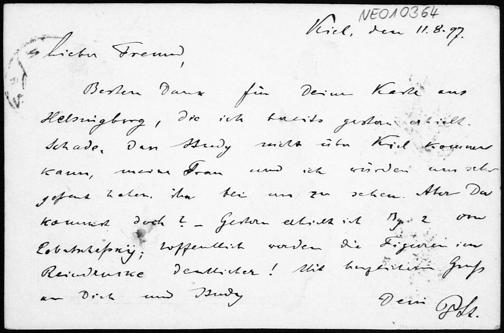 NEO10364
Kiel, den 11.8.97.
Lieber Freund,
Besten Dank für Deine Karte aus
Helsingborg, die ich bereits gestern erhielt.
Schade, dass Study nicht über Kiel kommen
kann, meine Frau und ich würden uns sehr
gefreut haben, ihn bei uns zu sehen. Aber Du
kommst doch? – Gestern erhielt ich Bg. 2 von
Lobatschefskij; hoffentlich werden die Figuren im
Reindrucke deutlicher! Mit herzlichem Gruß
an Dich und Study
Dein
P. St.